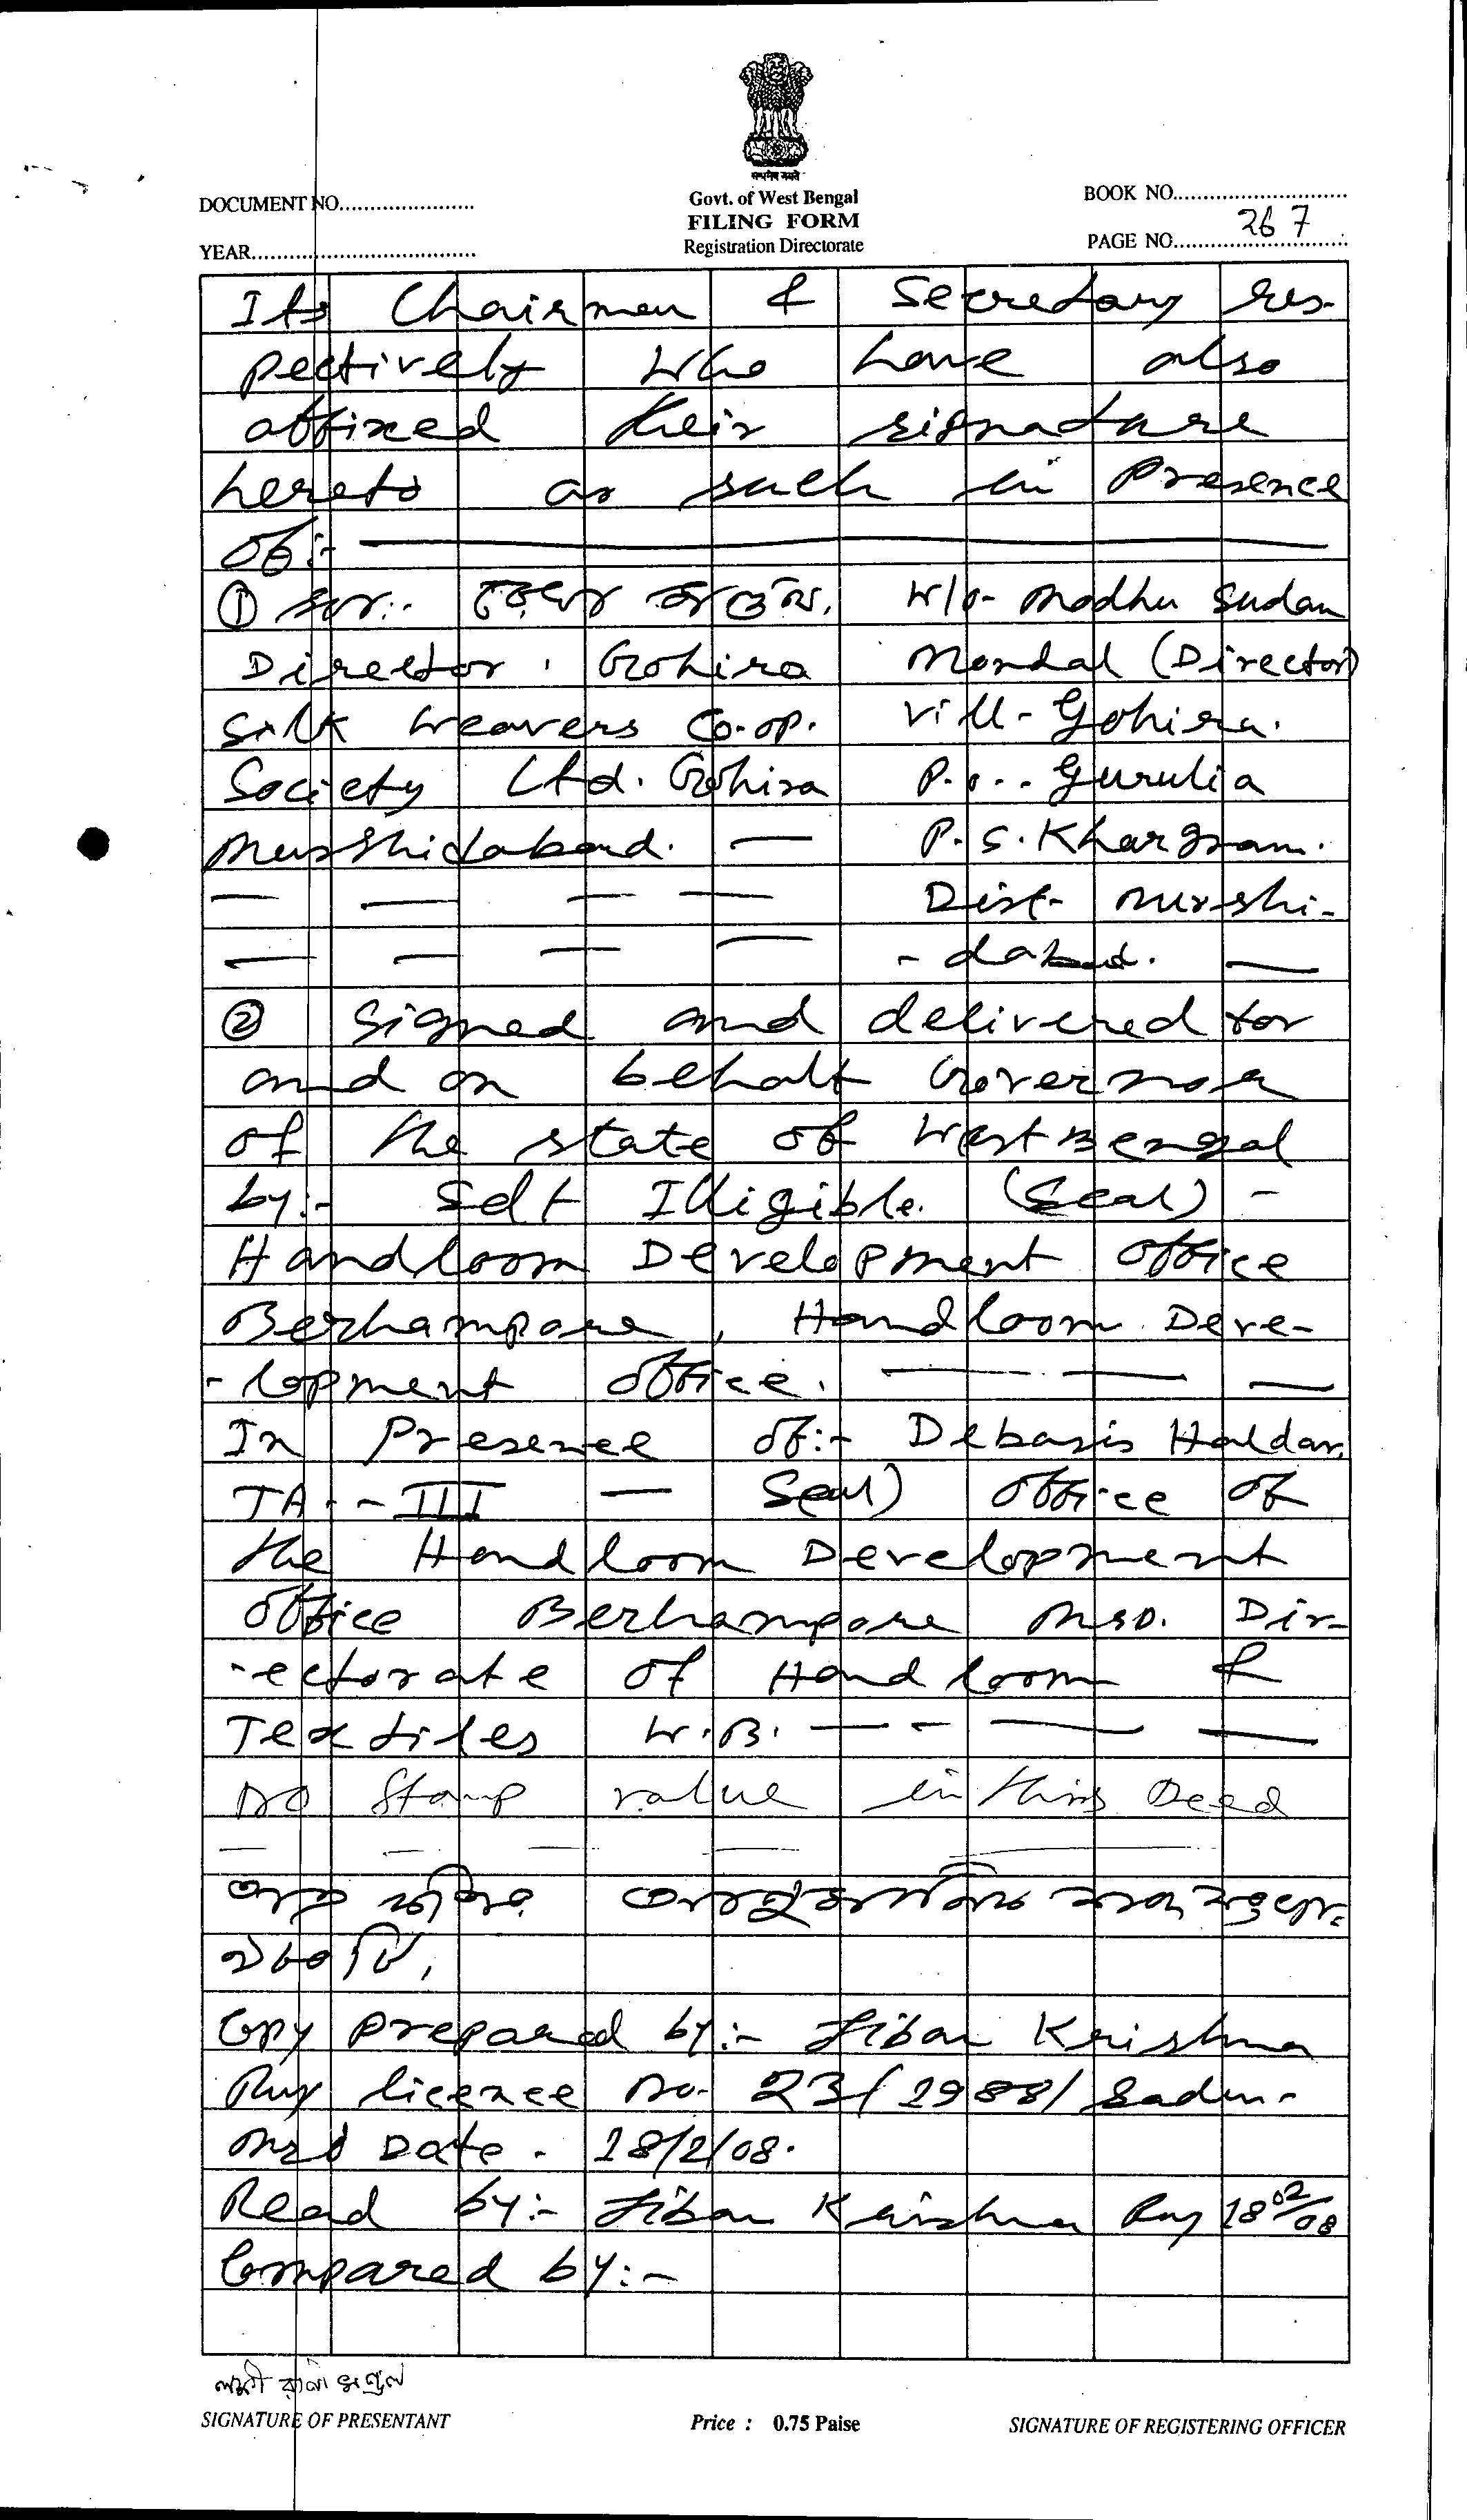 सत्यमेव जयते
DOCUMENT NO......................
Govt. of West Bengal
BOOK NO............................
YEAR....................................
FILING FORM
Registration Directorate
PAGE NO............................ 267
Its Chairman & Secretary res-
pectively who have also
affixed their signature
hereto as such in Presence
of:-
① W/o- Modhu Sudan
Director, Gohira Mondal (Director)
Silk Weavers Co-op. Vill- Gohira.
Society Ltd. Gohira P.o.- Gurulia
Murshidabad. — P.S. Khargram.
— — — — Dist- Murshi-
— — — — - dabad. —
② Signed and delivered for
and on behalf Governor
of the state of West Bengal
by:- Sd/- Illigible. (Seal) -
Handloom Development office
Berhampore, Handloom Deve-
- lopment office. — — —
In Presence of:- Debasis Haldar,
TA.- III — Seal) office of
the Handloom Development
office Berhampore Msd. Dir-
-ectorate of Handloom &
Textiles W.B. — - — —
No Stamp value in this Deed
— — — — —
Copy Prepared by:- Jiban Krishna
Roy licence No- 23/1988/Sadar-
Msd Date - 18/2/08.
Read by:- Jiban Krishna Roy 18/02/08
Compared by:-
লক্ষী রানী মণ্ডল
SIGNATURE OF PRESENTANT
Price : 0.75 Paise
SIGNATURE OF REGISTERING OFFICER